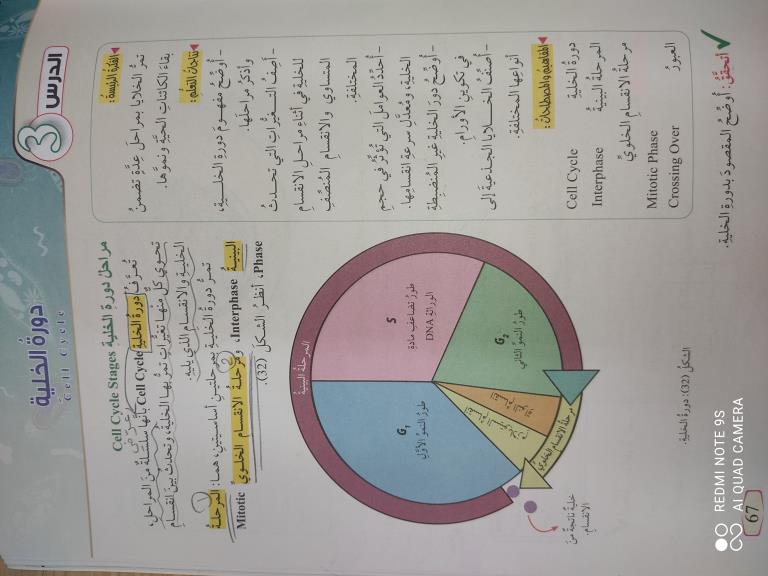 الدرس 3
دورة الخلية
Cell Cycle
الفكرة الرئيسة:
تمرُّ الخلايا بمراحلَ عِدَّةٍ تضمنُ
بقاءَ الكائناتِ الحيَّةِ ونموَّها.
نتاجات التعلُّم:
– أُوضِّحُ مفهومَ دورةِ الخليةِ،
وأذكرُ مراحلَها.
– أصِفُ التغيُّراتِ التي تحدثُ
للخليةِ في أثناءِ مراحلِ الانقسامِ
المتساوي والانقسامِ المُنصِّفِ
المختلفةِ.
– أُحدِّدُ العواملَ التي تُؤثِّرُ في حجمِ
الخليةِ، ومُعدَّلِ سرعةِ انقسامِها.
– أُوضِّحُ دورَ الخليةِ غيرِ المُنضبِطةِ
في تكوينِ الأورامِ.
– أُصنِّفُ الخلايا الجذعيةَ إلى
أنواعِها المختلفةِ.
المفاهيم والمصطلحات:
دورةُ الخليةِ Cell Cycle
المرحلةُ البينيةُ Interphase
مرحلةُ الانقسامِ الخلويِّ
Mitotic Phase
العبورُ Crossing Over
مراحلُ دورةِ الخليةِ Cell Cycle Stages
تُعرَّفُ دورةُ الخليةِ Cell Cycle بأنَّها سلسلةٌ منَ المراحلِ،
تحوي كلٌّ منْها تغيُّراتٍ تمرُّ بها الخليةُ، وتحدثُ بينَ انقسامِ
الخليةِ والانقسامِ الذي يليهِ.
تمرُّ دورةُ الخليةِ بمرحلتينِ أساسيتينِ، هما: المرحلةُ
البينيةُ Interphase، ومرحلةُ الانقسامِ الخلويِّ Mitotic
Phase، أنظرُ الشكلَ (32).
المرحلةُ البينيةُ
S
طورُ تضاعُفِ مادةِ
الوراثةِ DNA
G2
طورُ النموِّ الثاني
G1
طورُ النموِّ الأوَّلِ
مرحلةُ الانقسامِ الخلويِّ
خليةٌ ناتجةٌ منَ
الانقسامِ
الشكلُ (32): دورةُ الخليةِ.
أتحقَّقُ: أُوضِّحُ المقصودَ بدورةِ الخليةِ.
67
REDMI NOTE 9S
AI QUAD CAMERA